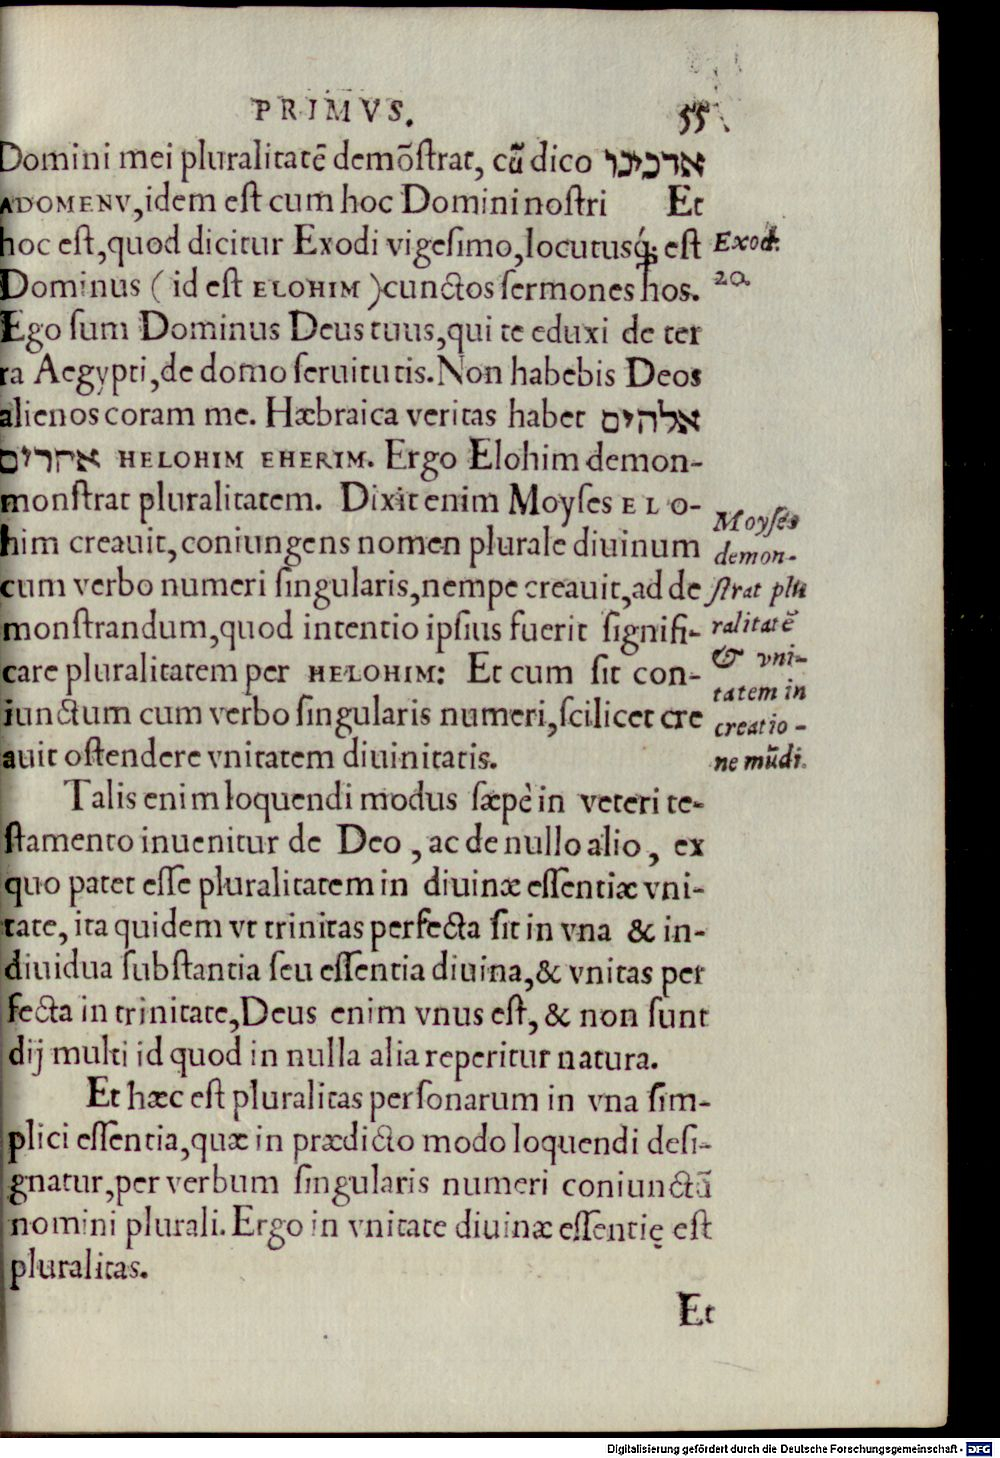 PRIMVS.
55
Domini mei pluralitatē demōſtrat, cū dico אדכינו
ADOMENV, idem eſt cum hoc Domini noſtri Et
hoc eſt, quod dicitur Exodi vigeſimo, locutusq́; eſt
Dominus ( id eſt ELOHIM ) cunctos ſermones hos.
Ego ſum Dominus Deus tuus, qui te eduxi de ter
ra Aegypti, de domo ſeruitutis. Non habebis Deos
alienos coram me. Hæbraica veritas habet אלהים
אחרים HELOHIM EHERIM. Ergo Elohim demon-
monſtrat pluralitatem. Dixit enim Moyſes ELO-
him creauit, coniungens nomen plurale diuinum
cum verbo numeri ſingularis, nempe creauit, ad de
monſtrandum, quod intentio ipſius fuerit ſignifi-
care pluralitatem per HELOHIM: Et cum ſit con-
iunctum cum verbo ſingularis numeri, ſcilicet cre
auit oſtendere vnitatem diuinitatis.
Talis enim loquendi modus ſæpè in veteri te-
ſtamento inuenitur de Deo, ac de nullo alio, ex
quo patet eſſe pluralitatem in diuinæ eſſentiæ vni-
tate, ita quidem vt trinitas perfecta ſit in vna & in-
diuidua ſubſtantia ſeu eſſentia diuina, & vnitas per
fecta in trinitate, Deus enim vnus eſt, & non ſunt
dij multi id quod in nulla alia reperitur natura.
Et hæc eſt pluralitas perſonarum in vna ſim-
plici eſſentia, quæ in prædicto modo loquendi deſi-
gnatur, per verbum ſingularis numeri coniunctā
nomini plurali. Ergo in vnitate diuinæ eſſentię eſt
pluralitas.
Et
Exod.
20.
Moyſes
demon-
ſtrat plu
ralitatē
& vni-
tatem in
creatio-
ne mūdi.
Digitalisierung gefördert durch die Deutsche Forschungsgemeinschaft - DFG